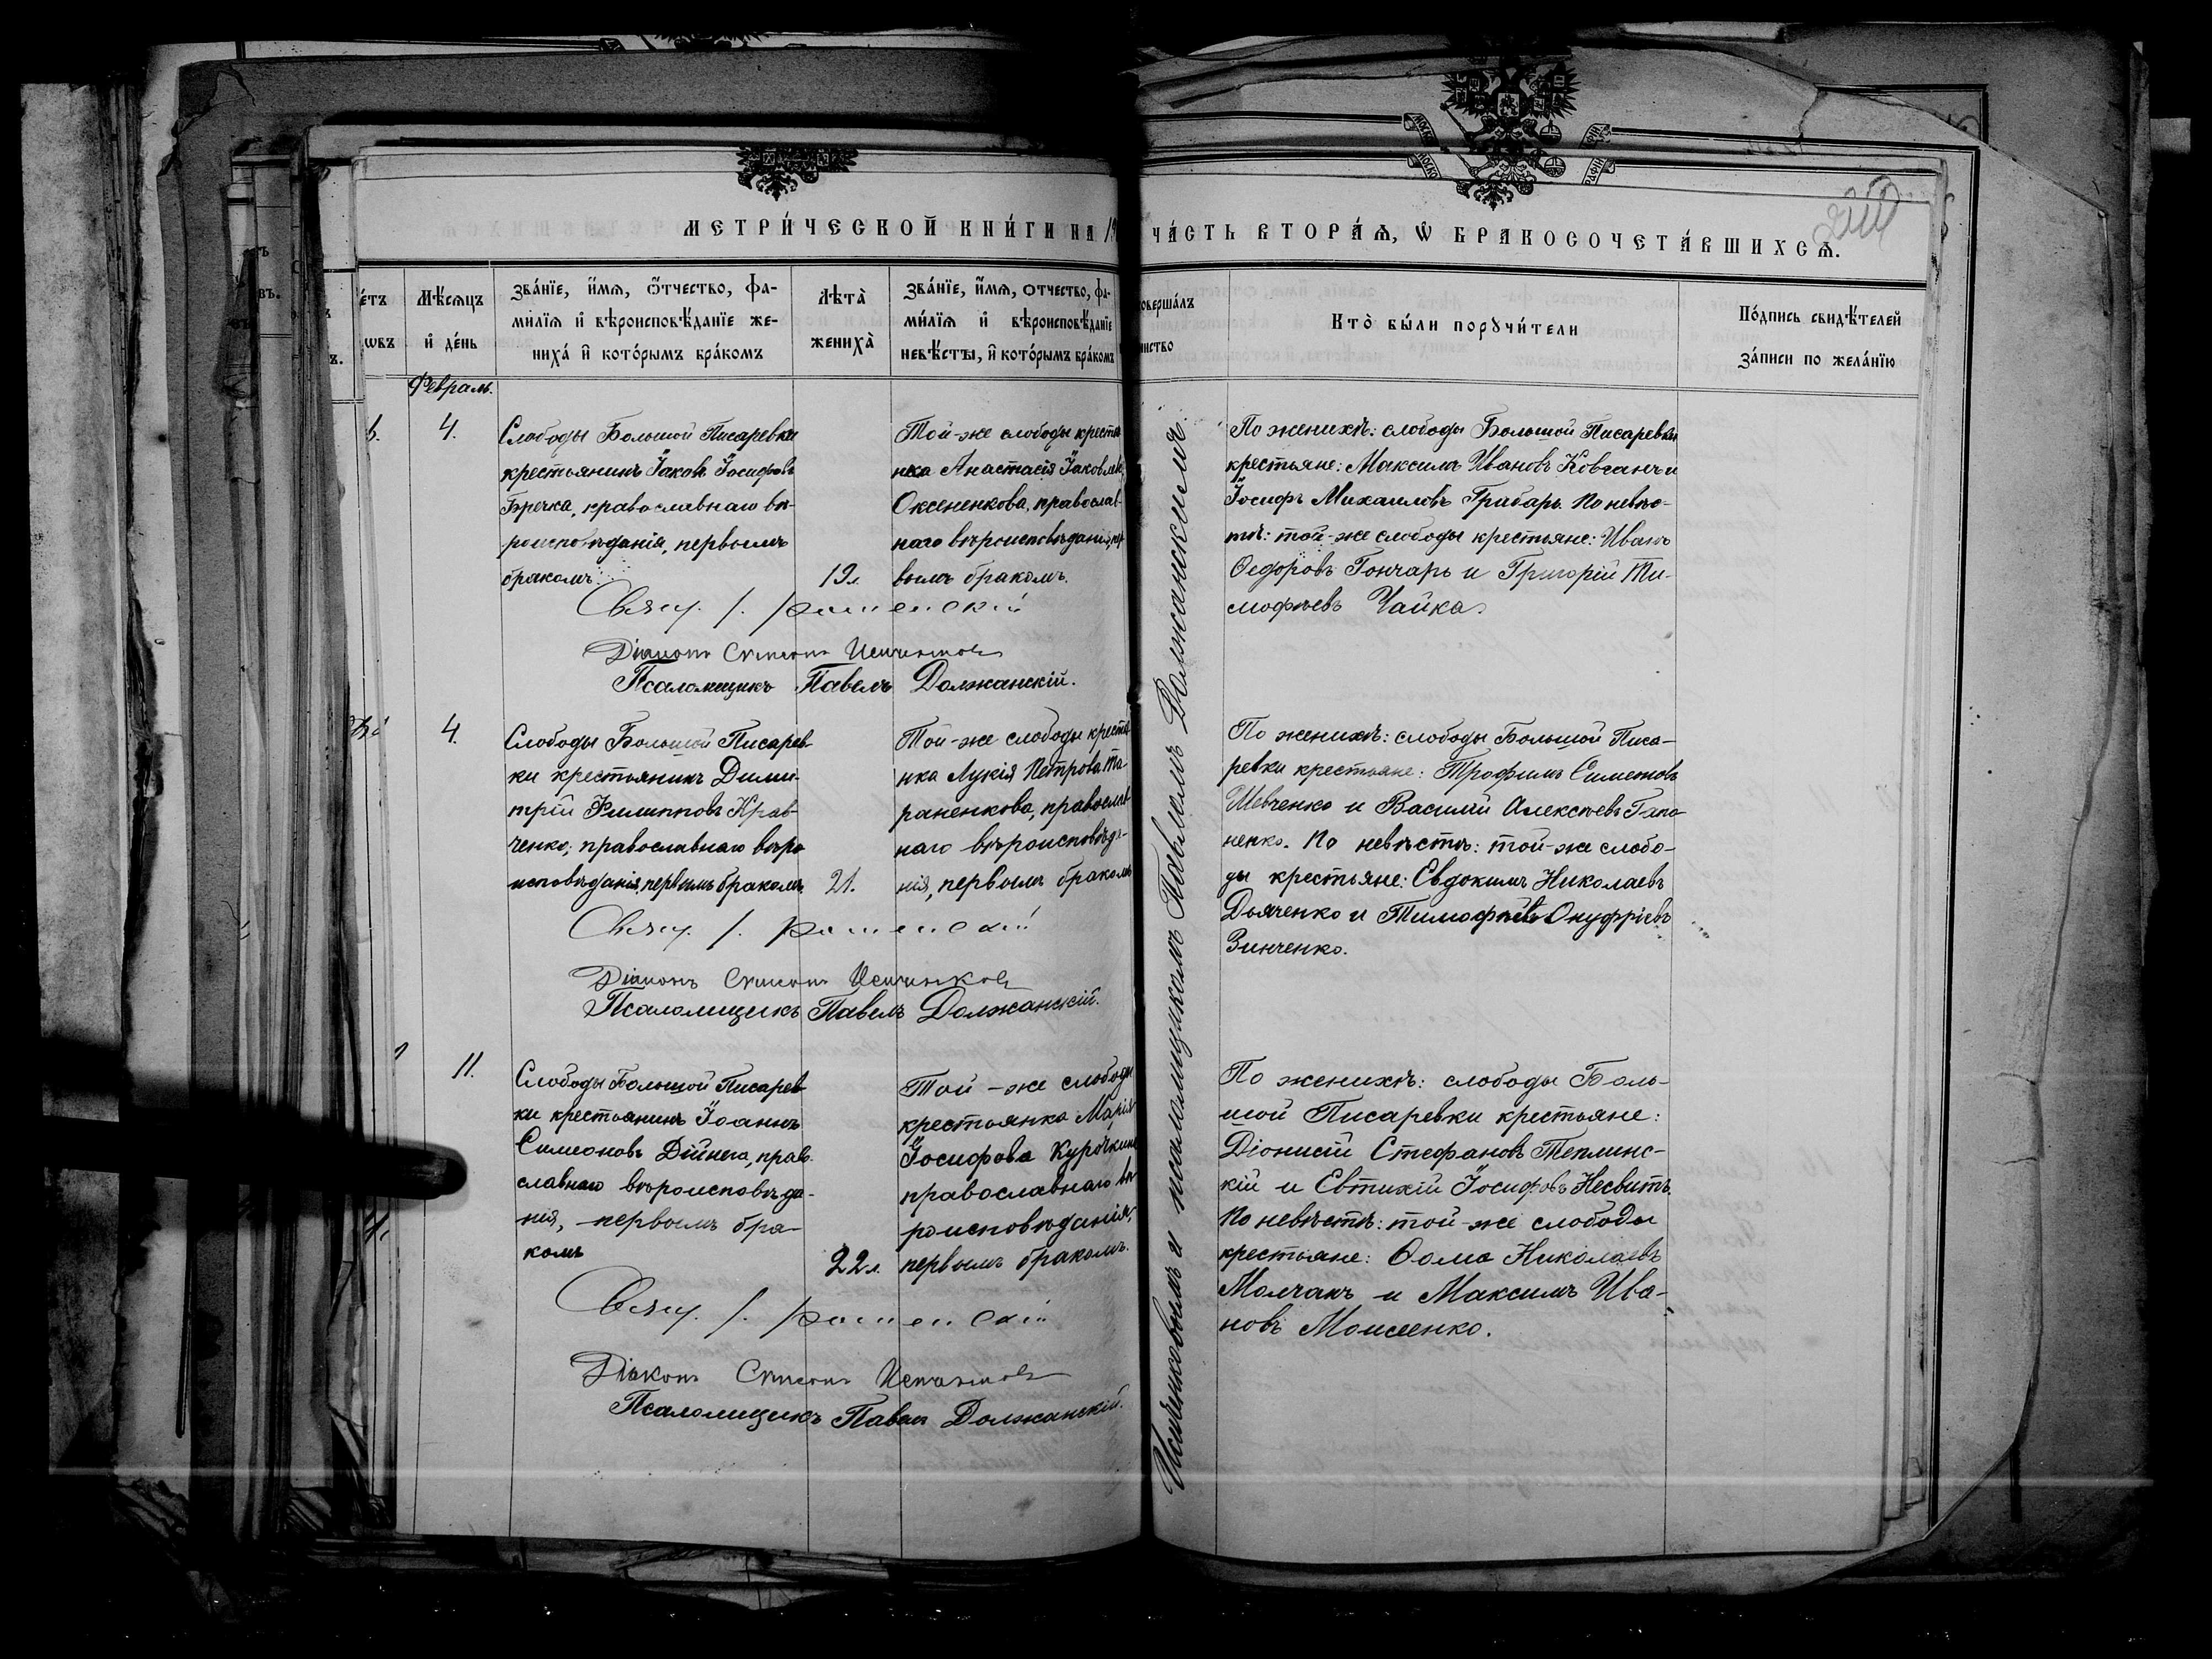 МЕТРИ́ЧЕСКОЙ КНИ́ГИ НА 19
ЧА́СТЬ ВТОРА́Ѧ, Ѡ БРАКОСОЧЕТА́ВШИХСѦ.
Мѣ́сѧцъ
и҆ де́нь
Зва́нїе, и҆́мѧ, ѻ҆́тчество, фа-
ми́лїѧ и҆ вѣроисповѣ́данїе же-
ниха́ и҆ кото́рымъ бра́комъ
Лѣта̀
жениха̀
Зва́нїе, и҆́мѧ, отчество, фа-
ми́лїѧ и҆ вѣроисповѣ́данїе
невѣ́сты, и҆ кото́рымъ бра́комъ
Кто̀ бы́ли порꙋчи́тели
По́дпись свидѣ́телей
за́писи по жела́нїю
Февраль.
4.
Слободы Большой Писаревки
крестьянинъ Іаковъ Іосифовъ
Бречка, православнаго вѣ-
роисповѣданія, первымъ
бракомъ.
19л.
Той-же слободы крестья
нка Анастасія Іаковлева
Оксененкова, православ-
наго вѣроисповѣданія, пер
вымъ бракомъ.
По женихѣ: слободы Большой Писаревки
крестьяне: Максимъ Ивановъ Ковганъ и
Іосифъ Михаиловъ Грабарь. По невѣс-
тѣ: той-же слободы крестьяне: Иванъ
Ѳедоровъ Гончарь и Григорій Ти-
мофѣевъ Чайка.
Свящ. І.
Діаконъ Симеонъ
Псаломщикъ Павелъ Должанскій.
4.
Слободы Большой Писарев-
ки крестьянинъ Дими-
трій Филипповъ Крав-
ченко, православнаго вѣро
исповѣданія, первымъ бракомъ
21.
Той-же слободы крестья
нка Лукія Петрова Та-
раненкова, православ
наго вѣроисповѣда-
нія, первымъ бракомъ
По женихѣ: слободы Большой Писа-
ревки крестьяне: Трофимъ Симеоновъ
Шевченко и Василій Алексѣевъ Гапо
ненко. По невѣстѣ: той-же слобо-
ды крестьяне: Евдокимъ Николаевъ
Дьяченко и Тимофѣй Онуфріевъ
Зинченко.
Свящ. І.
Діаконъ Симеонъ
Псаломщикъ Павелъ Должанскій.
11.
Слободы Большой Писарев
ки крестьянинъ Іоаннъ
Симеоновъ Дійнега, право-
славнаго вѣроисповѣда-
нія, первымъ бра-
комъ
22л.
Той-же слободы
крестьянка Марія
Іосифова Курочкина
православнаго вѣ-
роисповѣданія,
первымъ бракомъ.
По женихѣ: слободы Боль-
шой Писаревки крестьяне:
Діонисій Стефановъ Теплинс-
кій и Евтихій Іосифовъ Несвитъ.
По невѣстѣ: той-же слободы
крестьяне: Ѳома Николаевъ
Молчанъ и Максимъ Ива-
новъ Моисеенко.
Свящ. І.
Діаконъ Симеонъ
Псаломщикъ Павелъ Должанскій.
и псаломщикомъ Павломъ Должанскимъ.